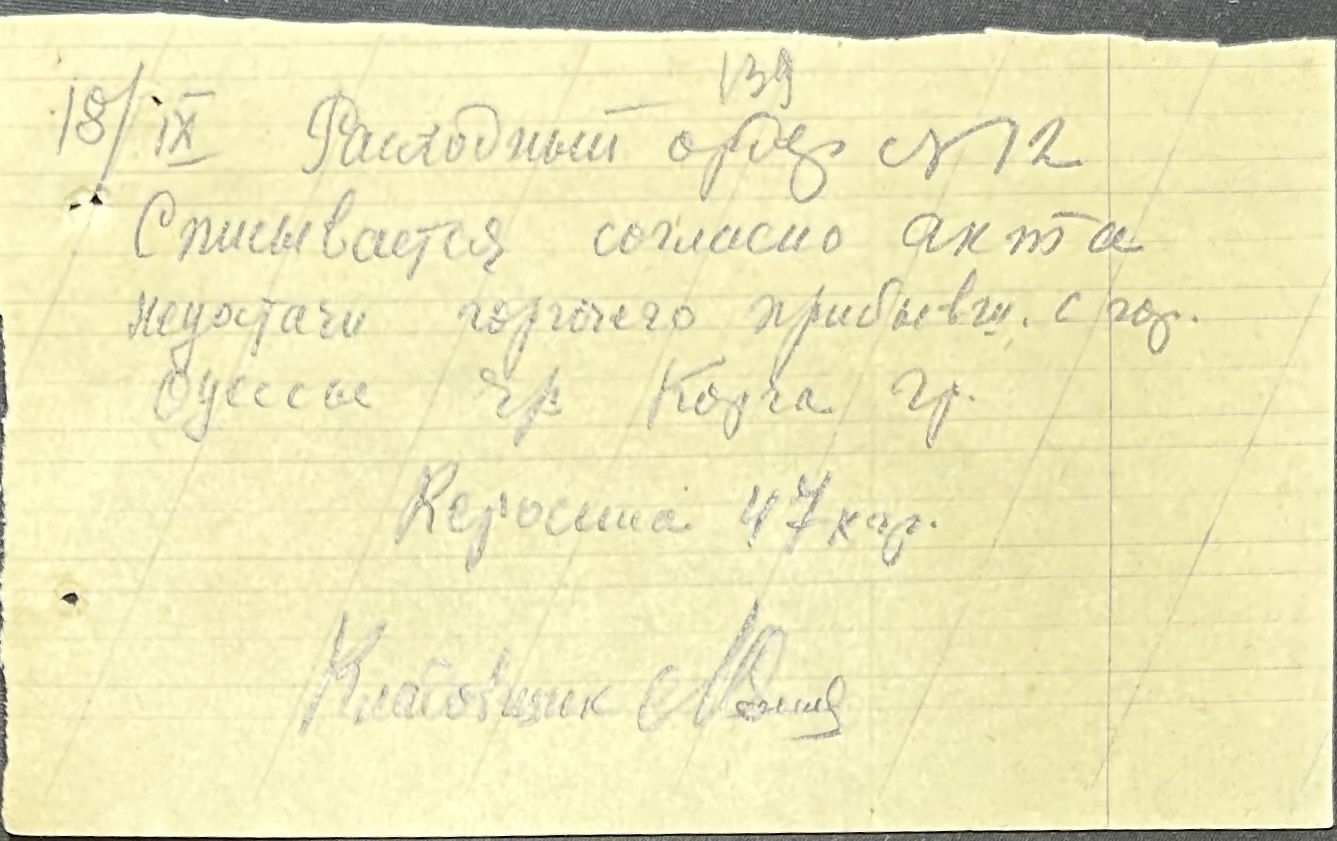 139
18/IX Расходный ордер №12
Списывается согласно акта
недостачи горючего прибывш. с гор.
Одессы чр Корча гр.
Керосина 47 кгр.
Кладовщик